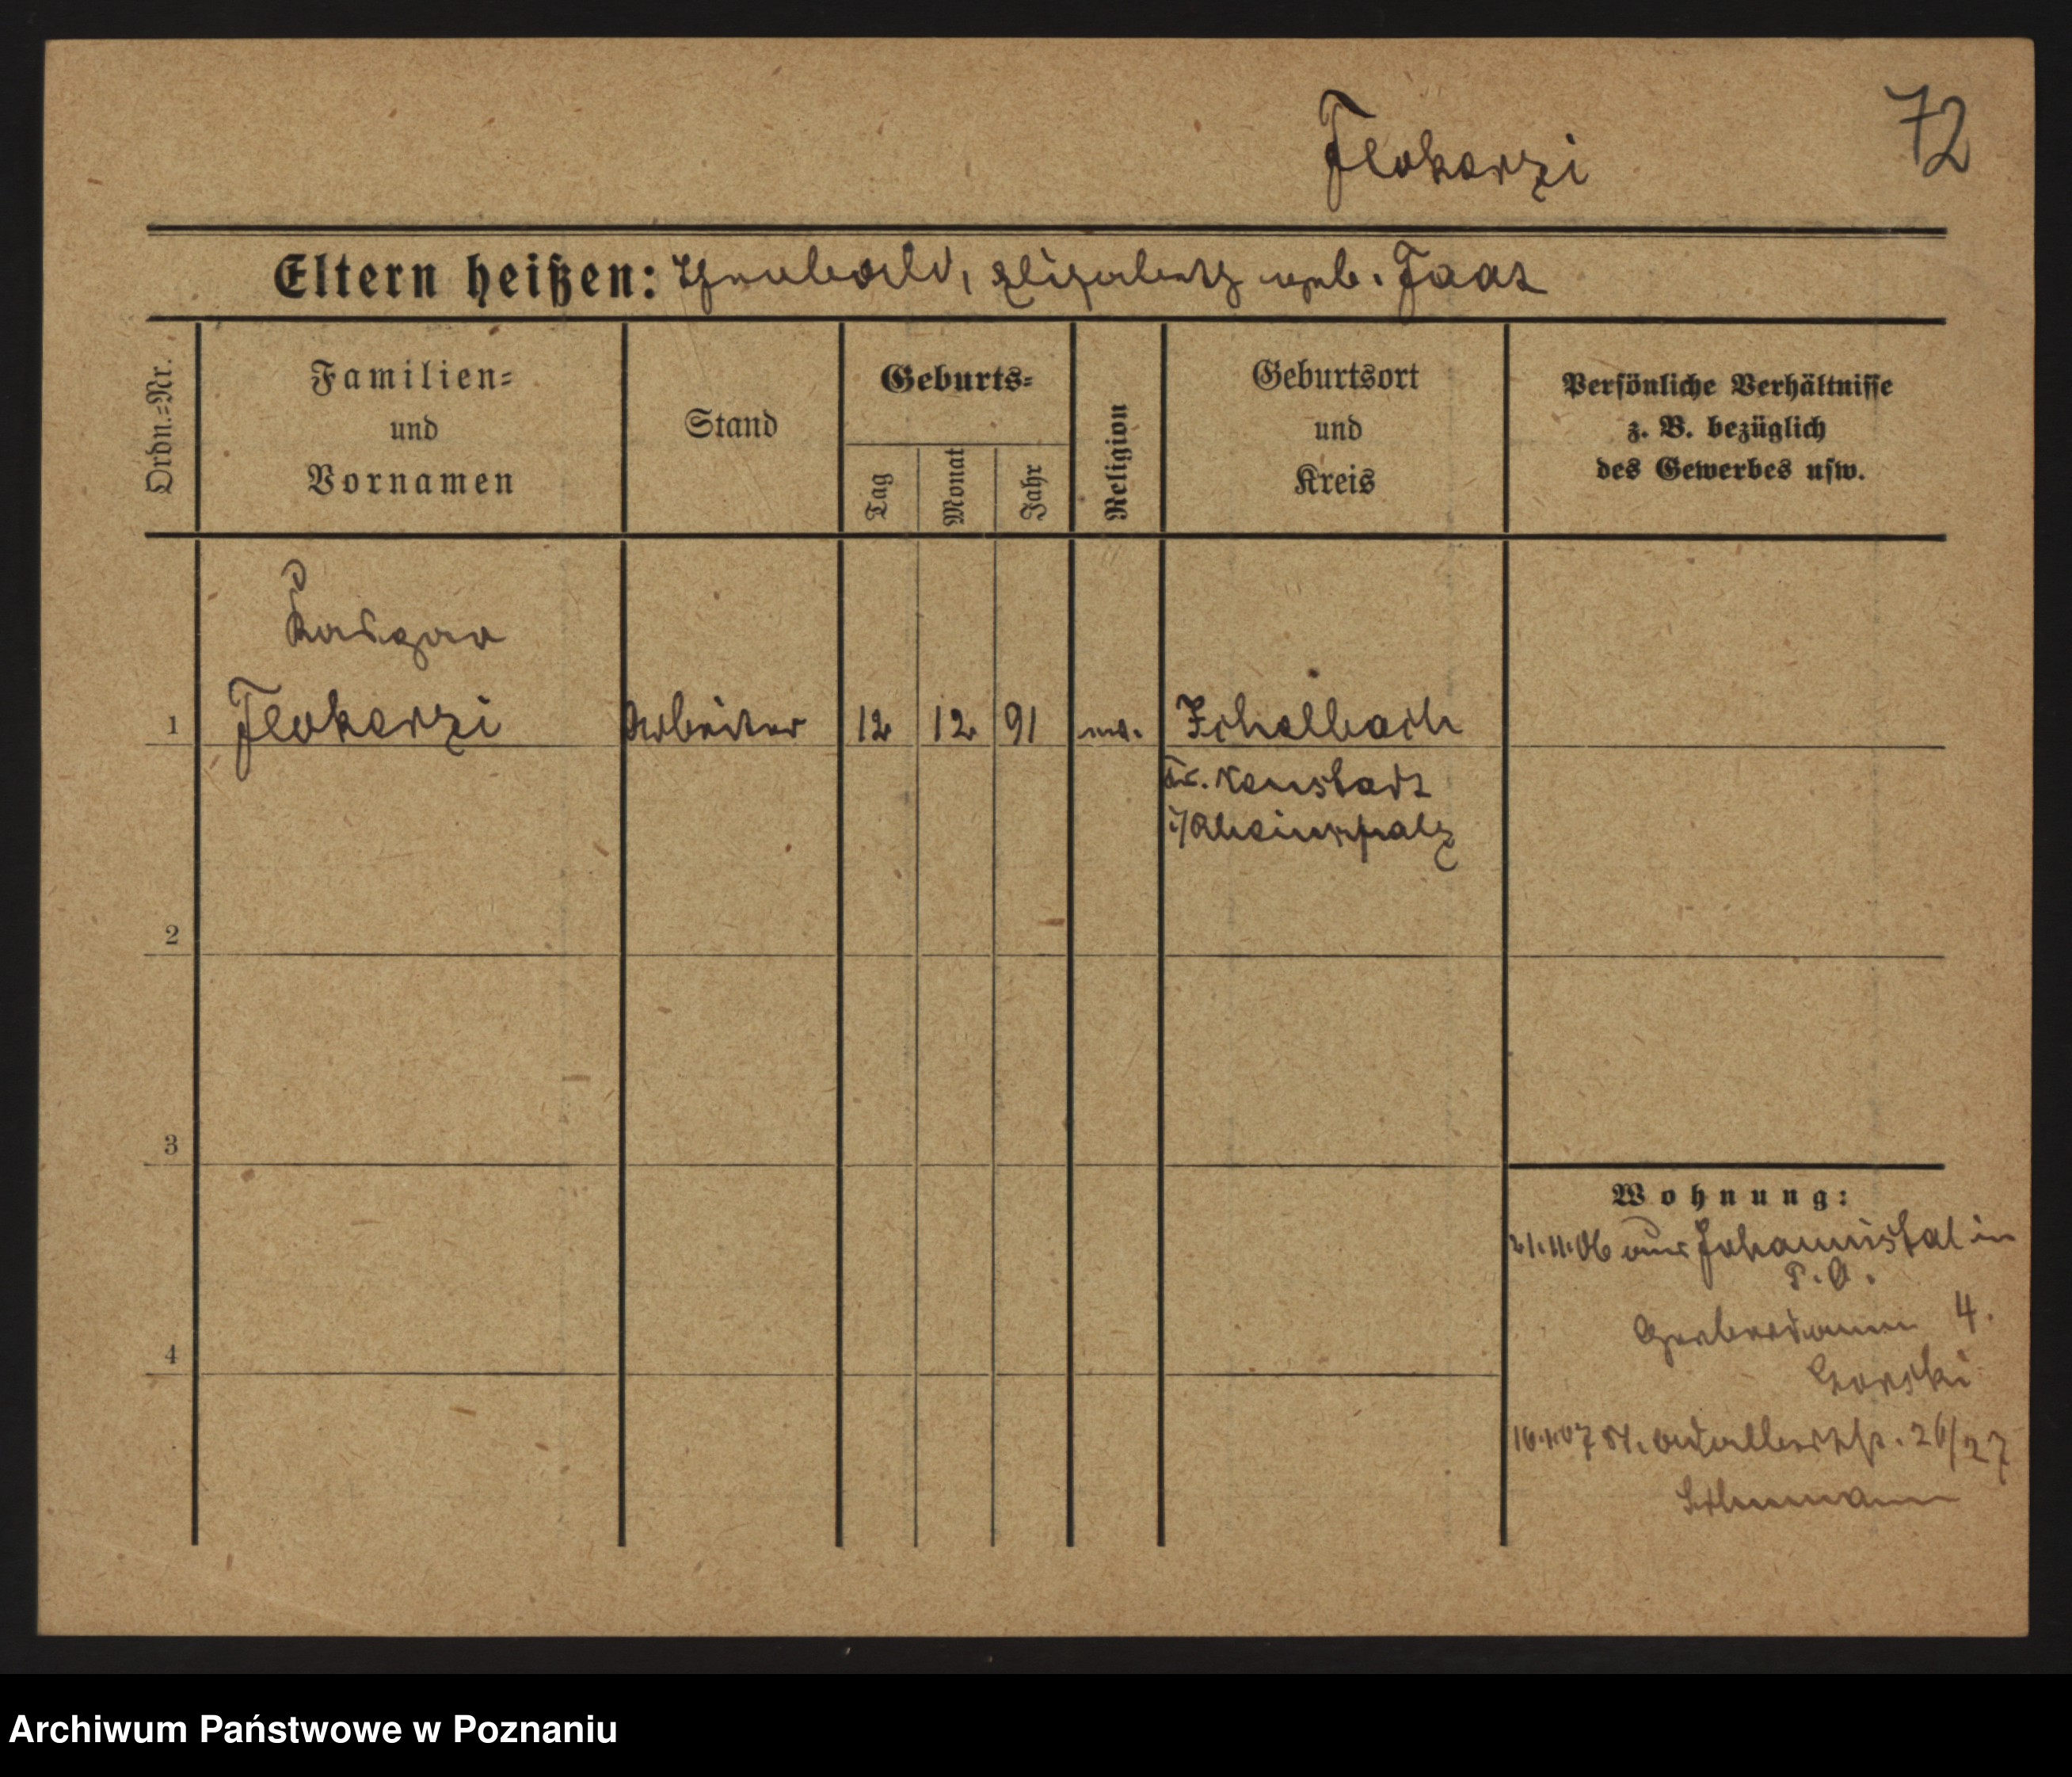 72
Flokerzi
Eltern heißen: Theobald, Elisabeth geb. Faat
Ordn.-Nr.
Familien-
und
Vornamen
Stand
Geburts-
Tag
Monat
Jahr
Religion
Geburtsort
und
Kreis
Persönliche Verhältnisse
z. B. bezüglich
des Gewerbes usw.
Kaspar
1 Flokerzi Arbeiter 12 12 91
Kr. Neustadt
Rheinpfalz
2
3
4
Wohnung:
21.11.06 aus Johannistal in
P. O.
Gerberdamm 4.
Gorski
16.1.07 St. Adalbertstr. 26/27
Schumann
Archiwum Państwowe w Poznaniu